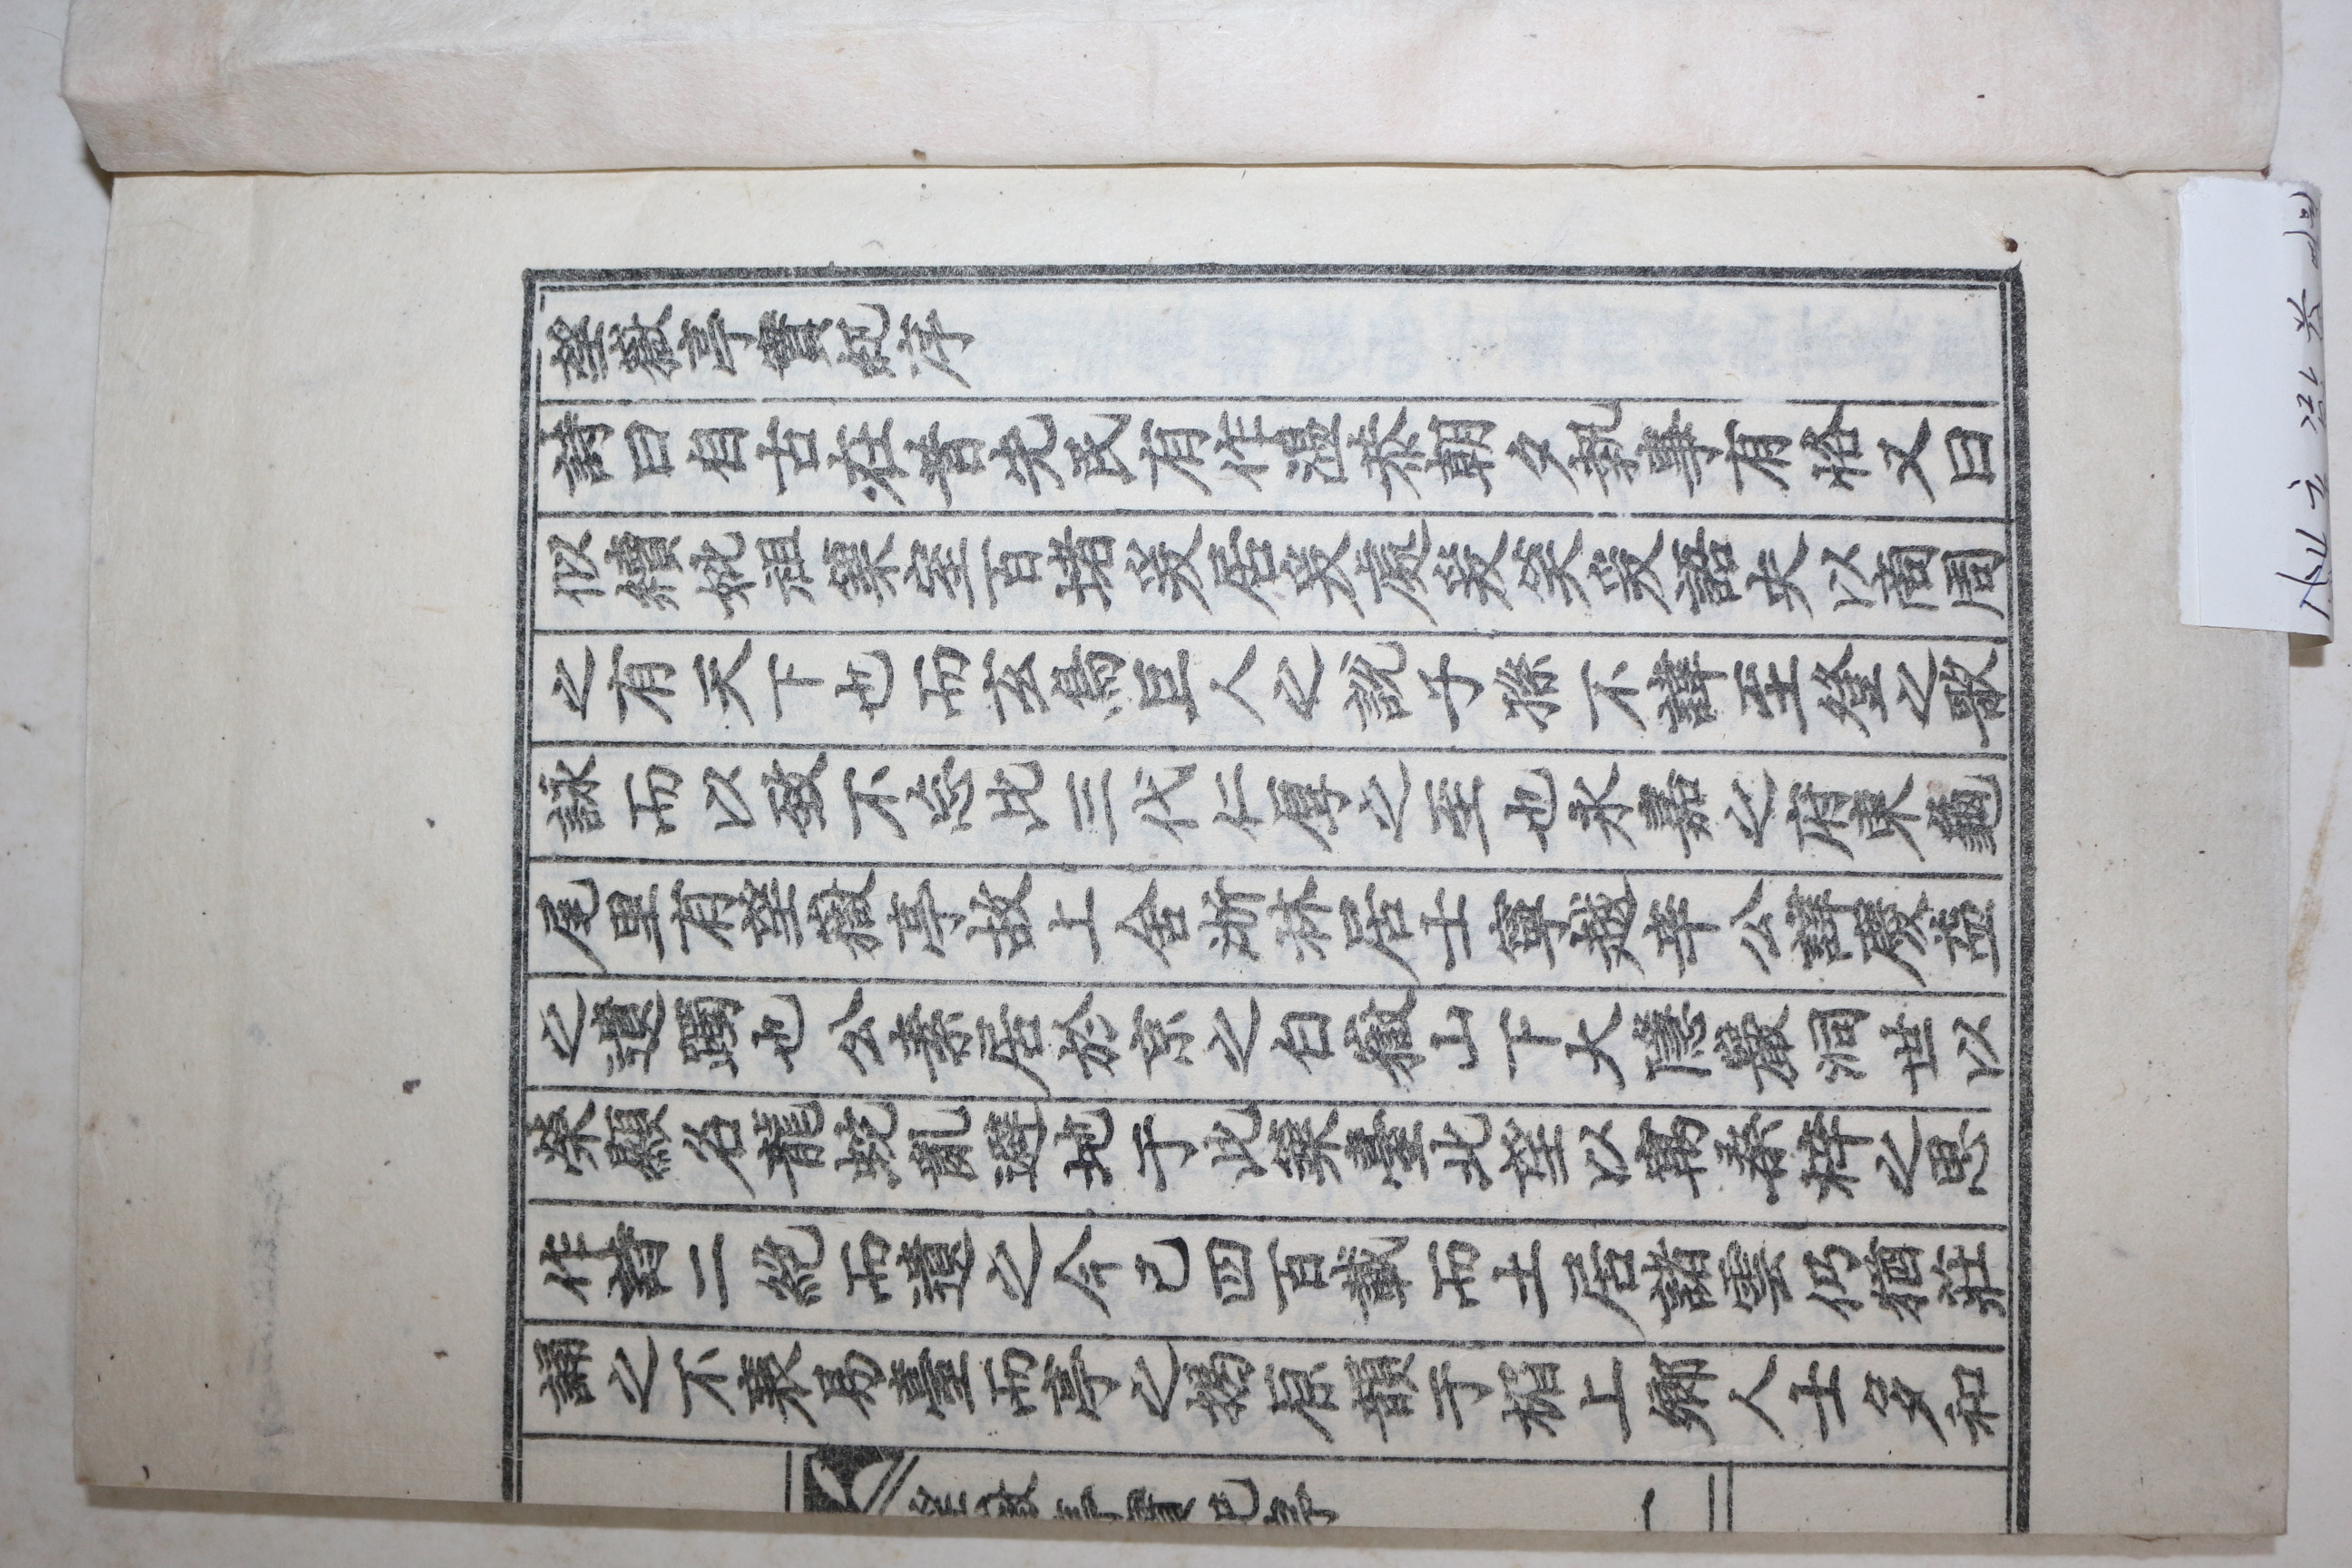 望嶽亭實記序
詩曰自古在昔先民有作溫恭朝夕執事有恪又曰
似續妣祖築室百堵爰居爰處爰笑爰語夫以商周
之有天下也而玄鳥巨人之說子孫不諱至登之歌
詠而以致不忘比三代仁厚之至也永嘉之府東龜
尾里有望嶽亭故上舍浙林居士寧越辛公諱慶益
之遺躅也公素居於京之白嶽山下大隱巖洞世以
榮顯名龍蛇亂避地于此築臺北望以寓桑梓之思
作詩二絶而遺之今已四百載而土居諸雲仍猶莊
誦之不衰易臺而亭之揭原韻于楣上鄉人士多和
望嶽亭實記序
一